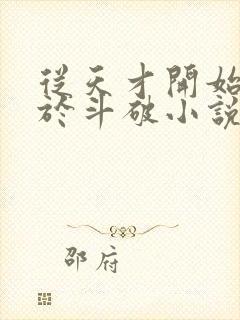 從天才開始
於斗破小說
邵府